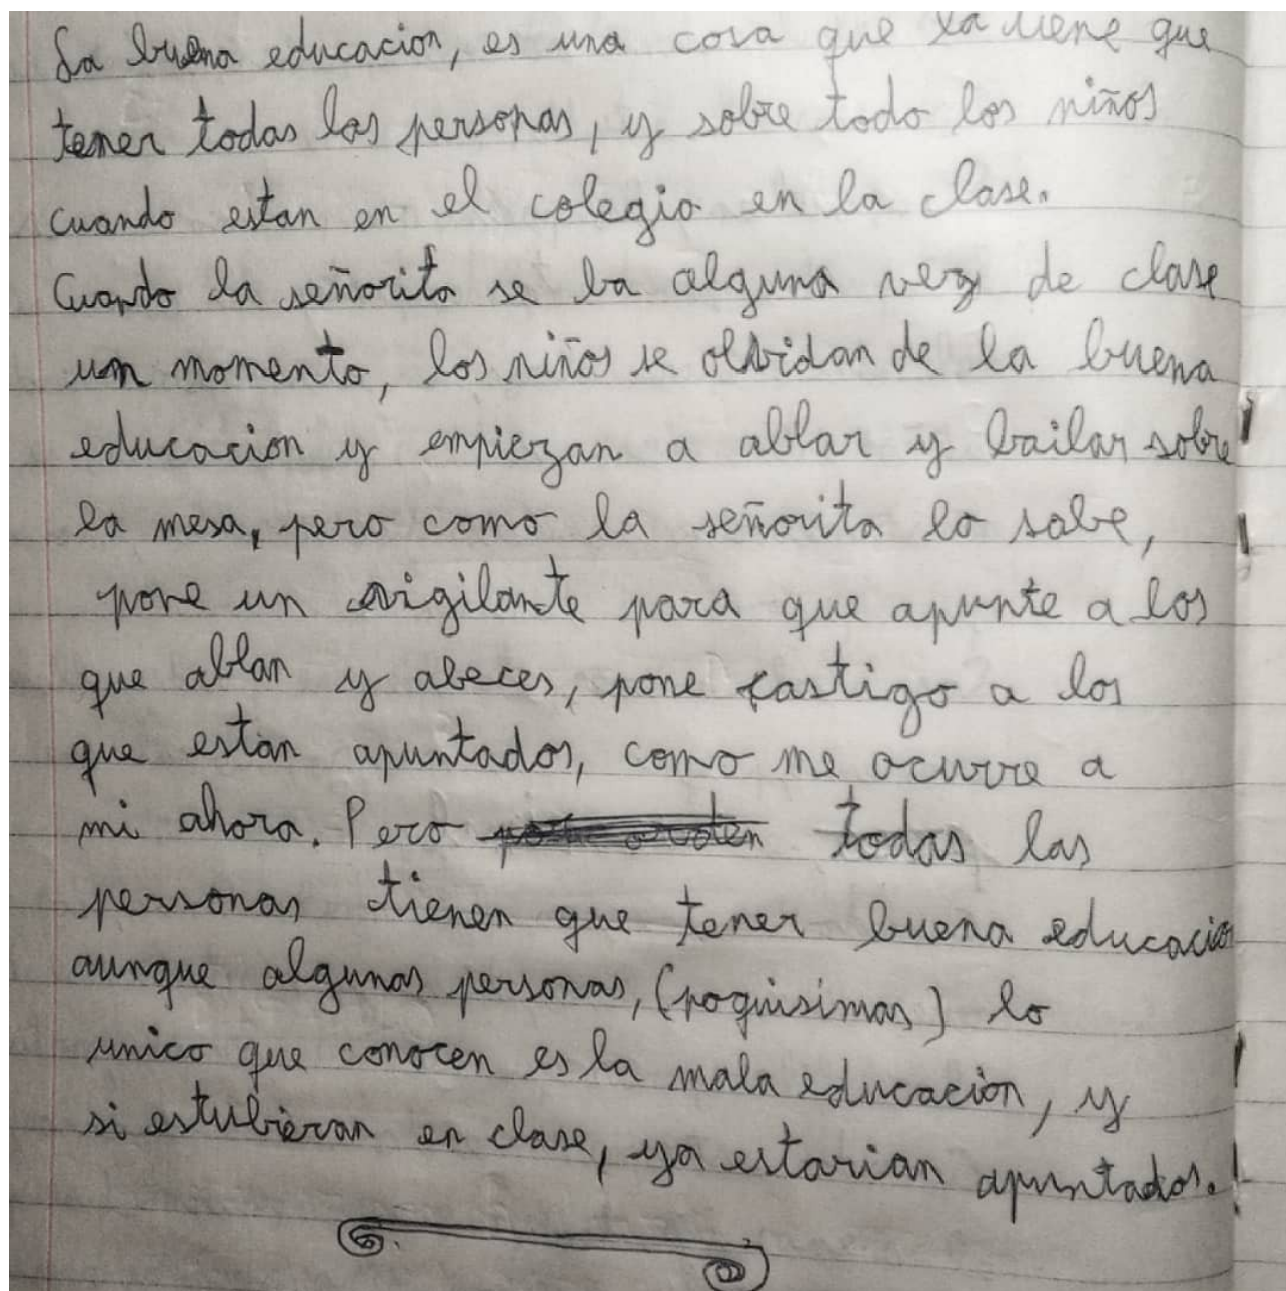 La buena educacion, es una cosa que la tiene que
tener todas las personas, y sobre todo los niños
cuando estan en el colegio en la clase.
Cuando la señorita se ba alguna vez de clase
un momento, los niños se olbidan de la buena
educacion y empiezan a ablar y bailar sobre
la mesa, pero como la señorita lo sabe,
pone un vigilante para que apunte a los
que ablan y abeces, pone castigo a los
que estan apuntados, como me ocurre a
mi ahora. Pero todas las
personas tienen que tener buena educacion
aunque algunas personas, (poquisimas) lo
unico que conocen es la mala educación, y
si estubieran en clase, ya estarian apuntados.